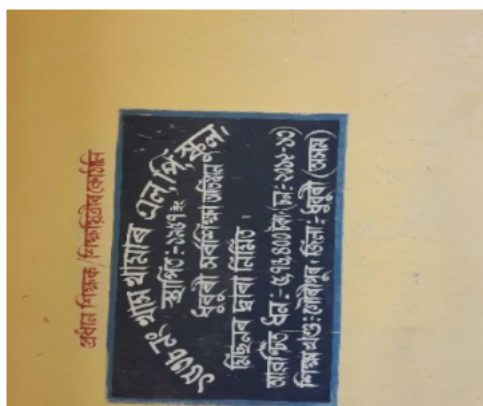 প্ৰধান শিক্ষক/শিক্ষয়িত্ৰীৰ কোঠালি
নং খাস খামাৰ এল, পি, স্কুল।
স্থাপিত :- ১৯৪৭ ইং
ধুবুৰী সৰ্বশিক্ষা অভিযান
মিছনৰ দ্বাৰা নিৰ্মিত ।
আবণ্টিত ধন :- ৫,৭৬,৪০০ টকা (চন: ২০১২-১৩)
শিক্ষাখণ্ড : গৌৰীপুৰ, জিলা :- ধুবুৰী (অসম)